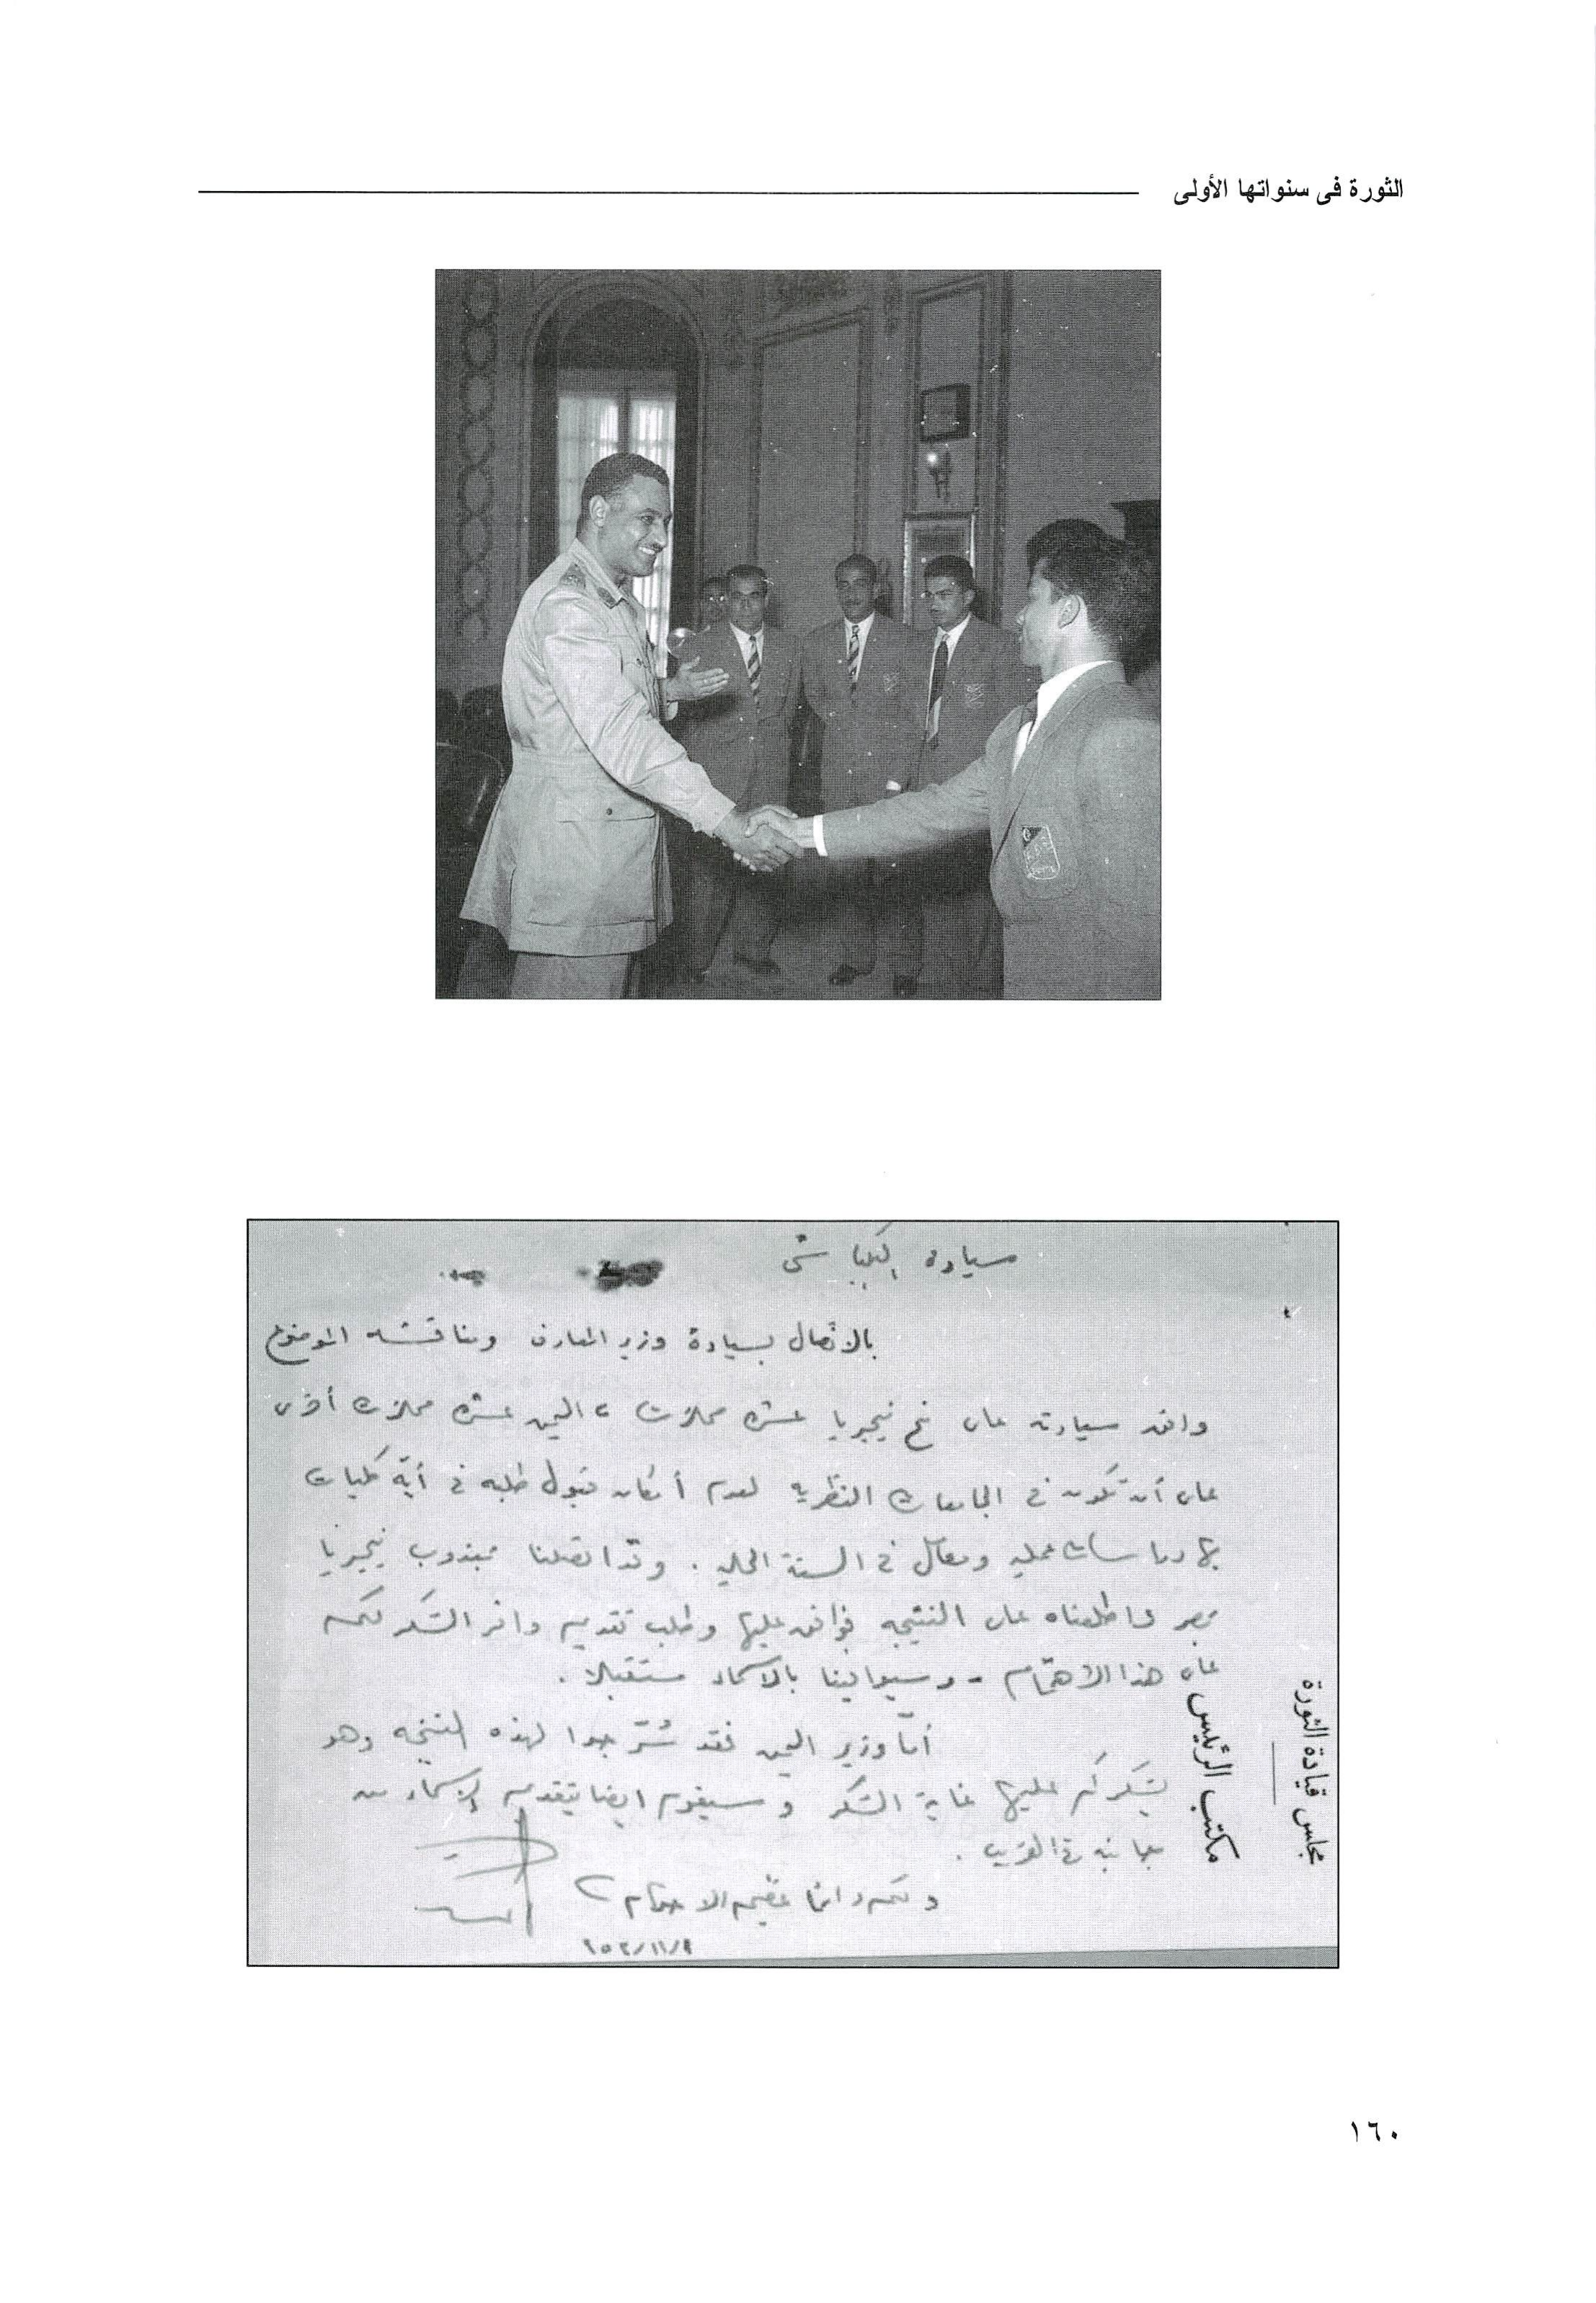 الثورة فى سنواتها الأولى
سيادة البكباشى
بالاتصال بسيادة وزير المعارف ومناقشته الموضوع
وافق سيادته على منح نيجيريا عشرة محلات، اليمن عشرة محلات أخرى
على أن تكون فى الجامعات النظرية لعدم أمكان قبول طلبه فى أية كليات
بها دراسات عملية ومعامل فى السنة الحالية . وقد اتصلنا بمندوب نيجيريا
بمصر واطلعناه على النتيجه فوافق عليها وطلب تقديم وافر الشكر لكم
على هذا الاهتمام - وسيوالينا بالاسماء مستقبلا .
أما وزير اليمن فقد سُرّ جدا لهذه النتيجه وهو
يشكركم عليها غاية الشكر وسيقوم ايضا بتقديم الاسماء من
جانبه فى القريب .
ولكم دائما عظيم الاحترام
مجلس قيادة الثورة
مكتب الرئيس
١٦٠